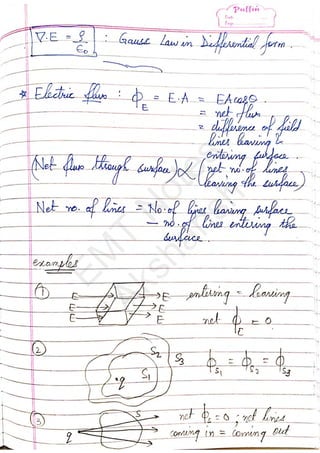 Puffin
Date
Page
∇.E = ρ/ε₀ : Gauss Law in Differential form.
* Electric flux : ϕ_E = E.A = EA cosθ.
= net flux
= difference of field
lines leaving &
entering surface.
(Net flux through surface) ∝ (net no. of lines
leaving the surface)
Net no. of lines = No. of lines leaving surface
— no. of lines entering the
surface.
examples
① E E entering = leaving
E E
E E net ϕ_E = 0
② S₂ S₃ ϕ_S₁ = ϕ_S₂ = ϕ_S₃
.q S₁
③ S net ϕ_E = 0 ; net lines
q coming in = coming out
EMT